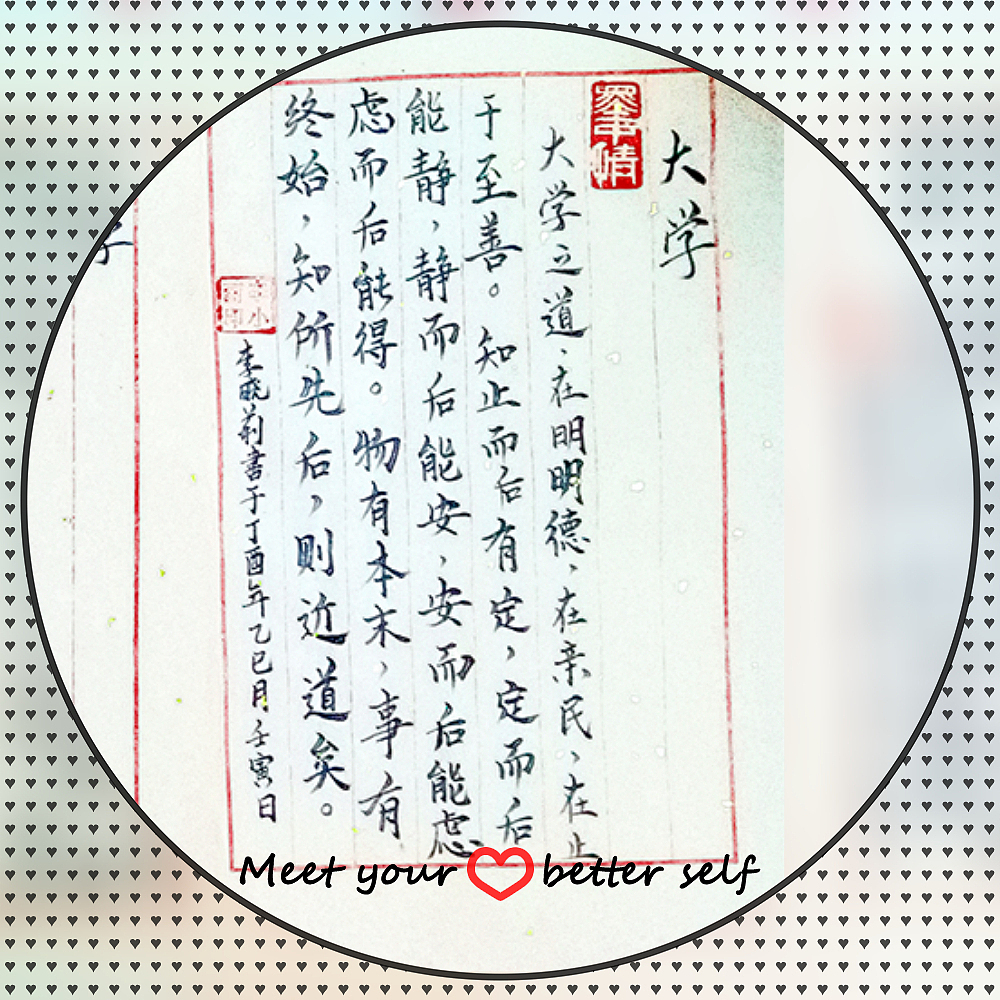 大学
大学之道、在明明德,在亲民,在止
于至善。知止而后有定,定而后
能静,静而后能安,安而后能虑
虑而后能得。物有本末,事有
终始,知所先后,则近道矣。
李晓莉書于丁酉年乙巳月壬寅日
Meet your better self